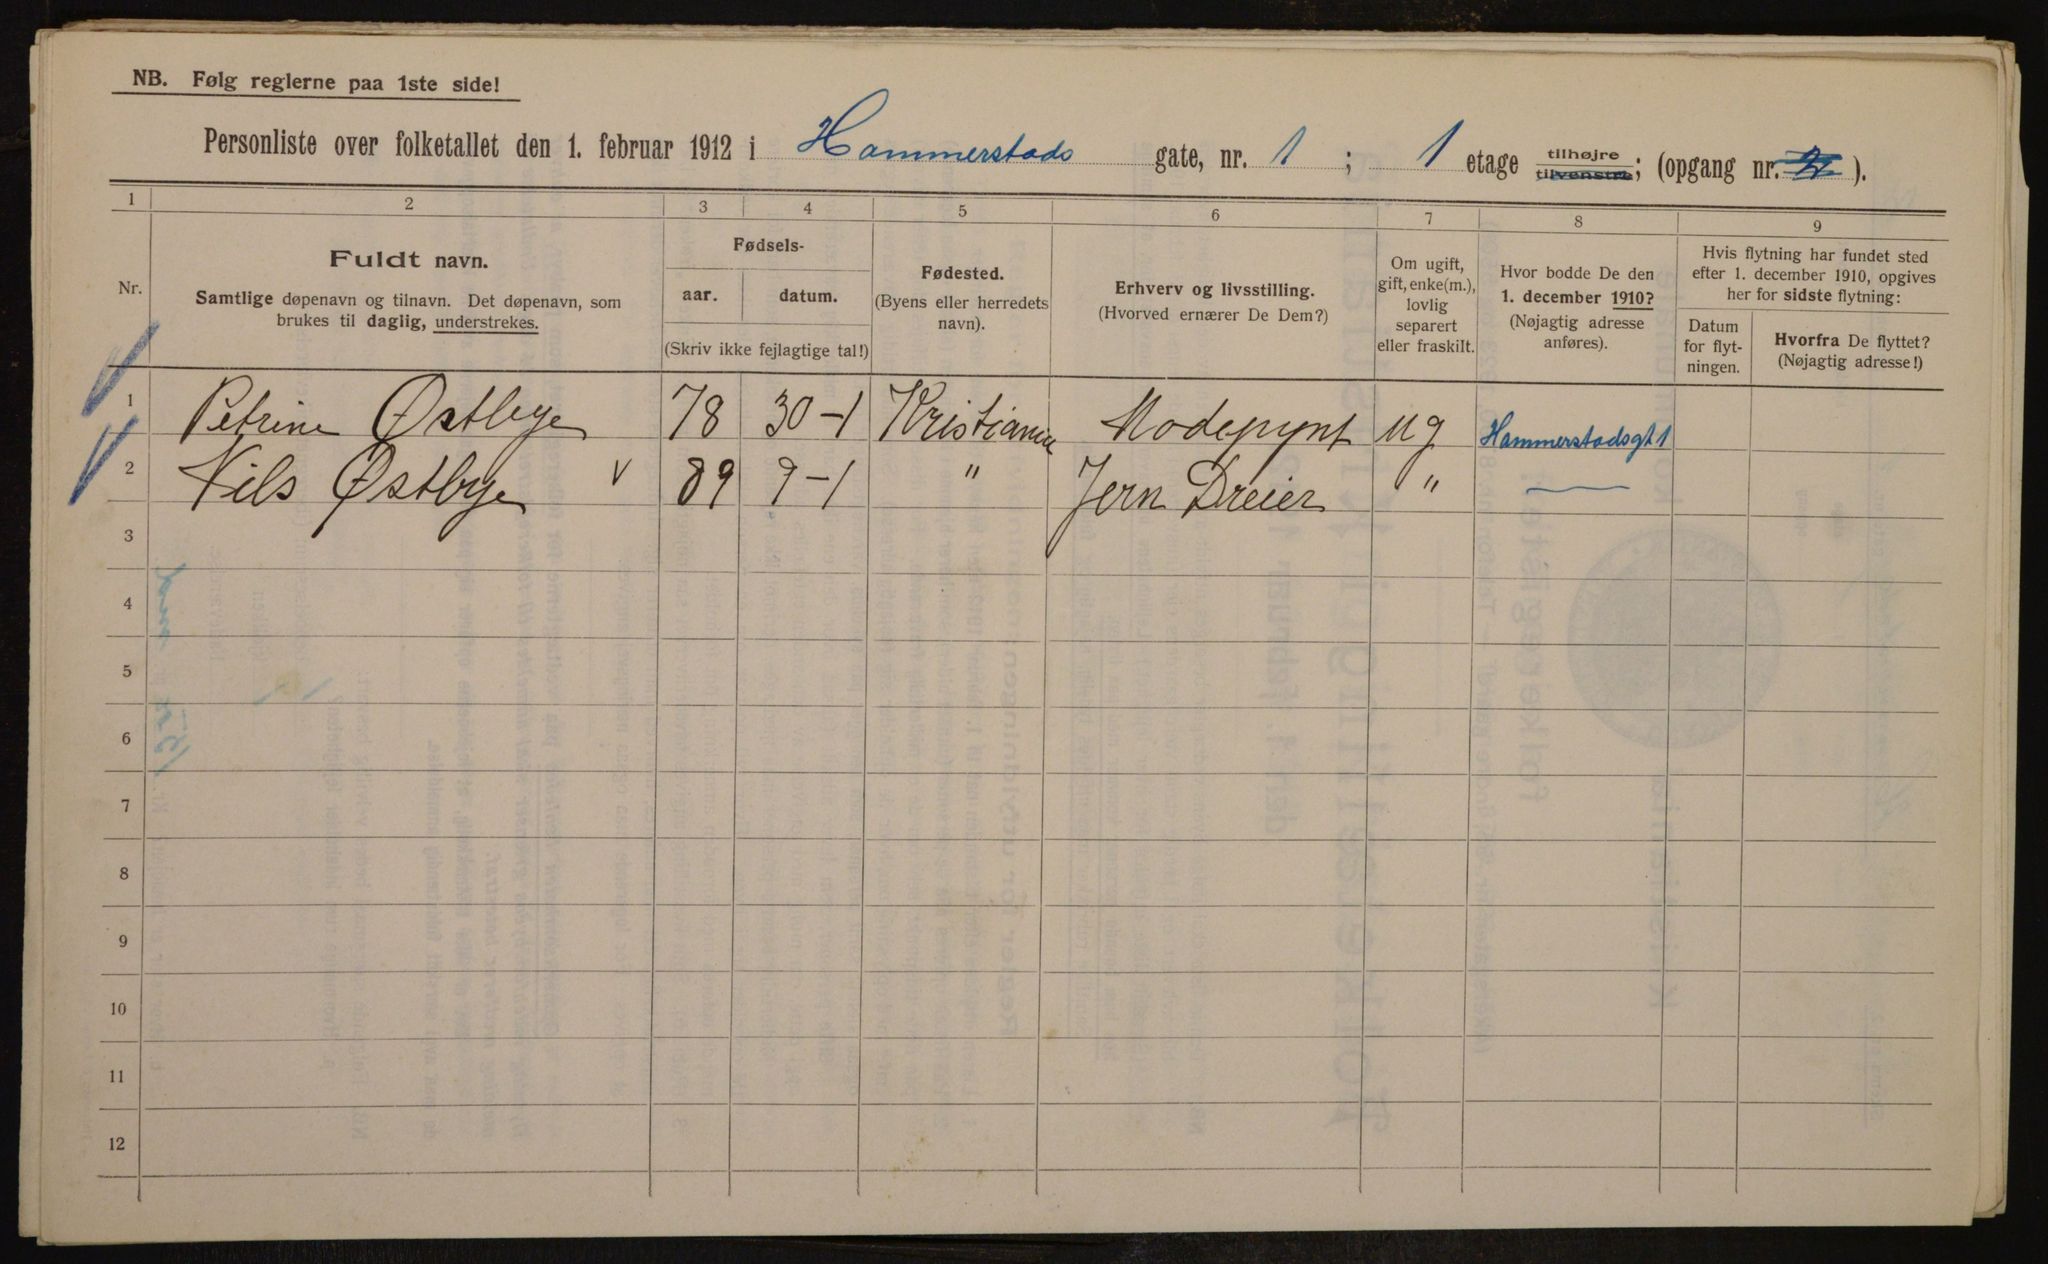 NB. Følg reglerne paa 1ste side!
Personliste over folketallet den 1. februar 1912 i Hammerstads gate, nr. 1 ; 1 etage tilhøjre tilvenstre; (opgang nr. ).
1 2 3 4 5 6 7 8 9
Nr.
Fuldt navn.
Samtlige døpenavn og tilnavn. Det døpenavn, som
brukes til daglig, understrekes.
Fødsels-
aar. datum.
(Skriv ikke fejlagtige tal!)
Fødested.
(Byens eller herredets
navn).
Erhverv og livsstilling.
(Hvorved ernærer De Dem?)
Om ugift,
gift, enke(m.),
lovlig
separert
eller fraskilt.
Hvor bodde De den
1. december 1910?
(Nøjagtig adresse
anføres).
Hvis flytning har fundet sted
efter 1. december 1910, opgives
her for sidste flytning:
Datum
for flyt-
ningen.
Hvorfra De flyttet?
(Nøjagtig adresse!)
1 Petrine Østbye 78 30-1 Kristiania Modepynt ug Hammerstadsgt 1
2 Nils Østbye v 89 9-1 " Jern Dreier " —
3
4
5
6
7
8
9
10
11
12